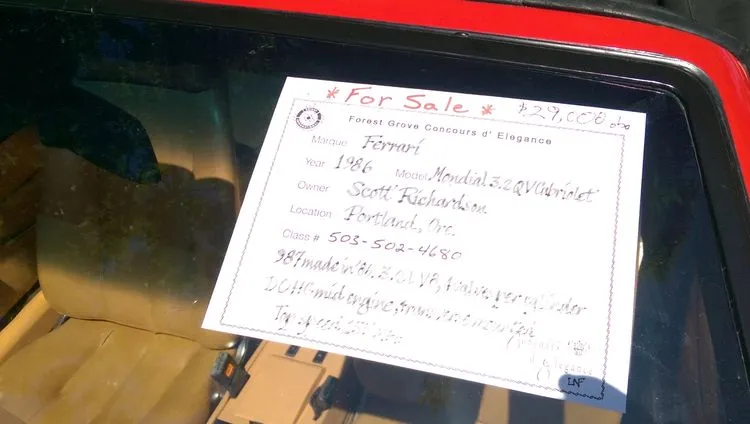 * For Sale * $29,000 obo
Forest Grove Concours d' Elegance
Marque Ferrari
Year 1986 Model Mondial 3.2 QV Cabriolet
Owner Scott Richardson
Location Portland, Ore.
Class # 503-502-4680
987 made in '86, 3.2L V8, 4 valve per cylinder
DOHC mid engine, transverse mounted
Top speed
elegance
LNF